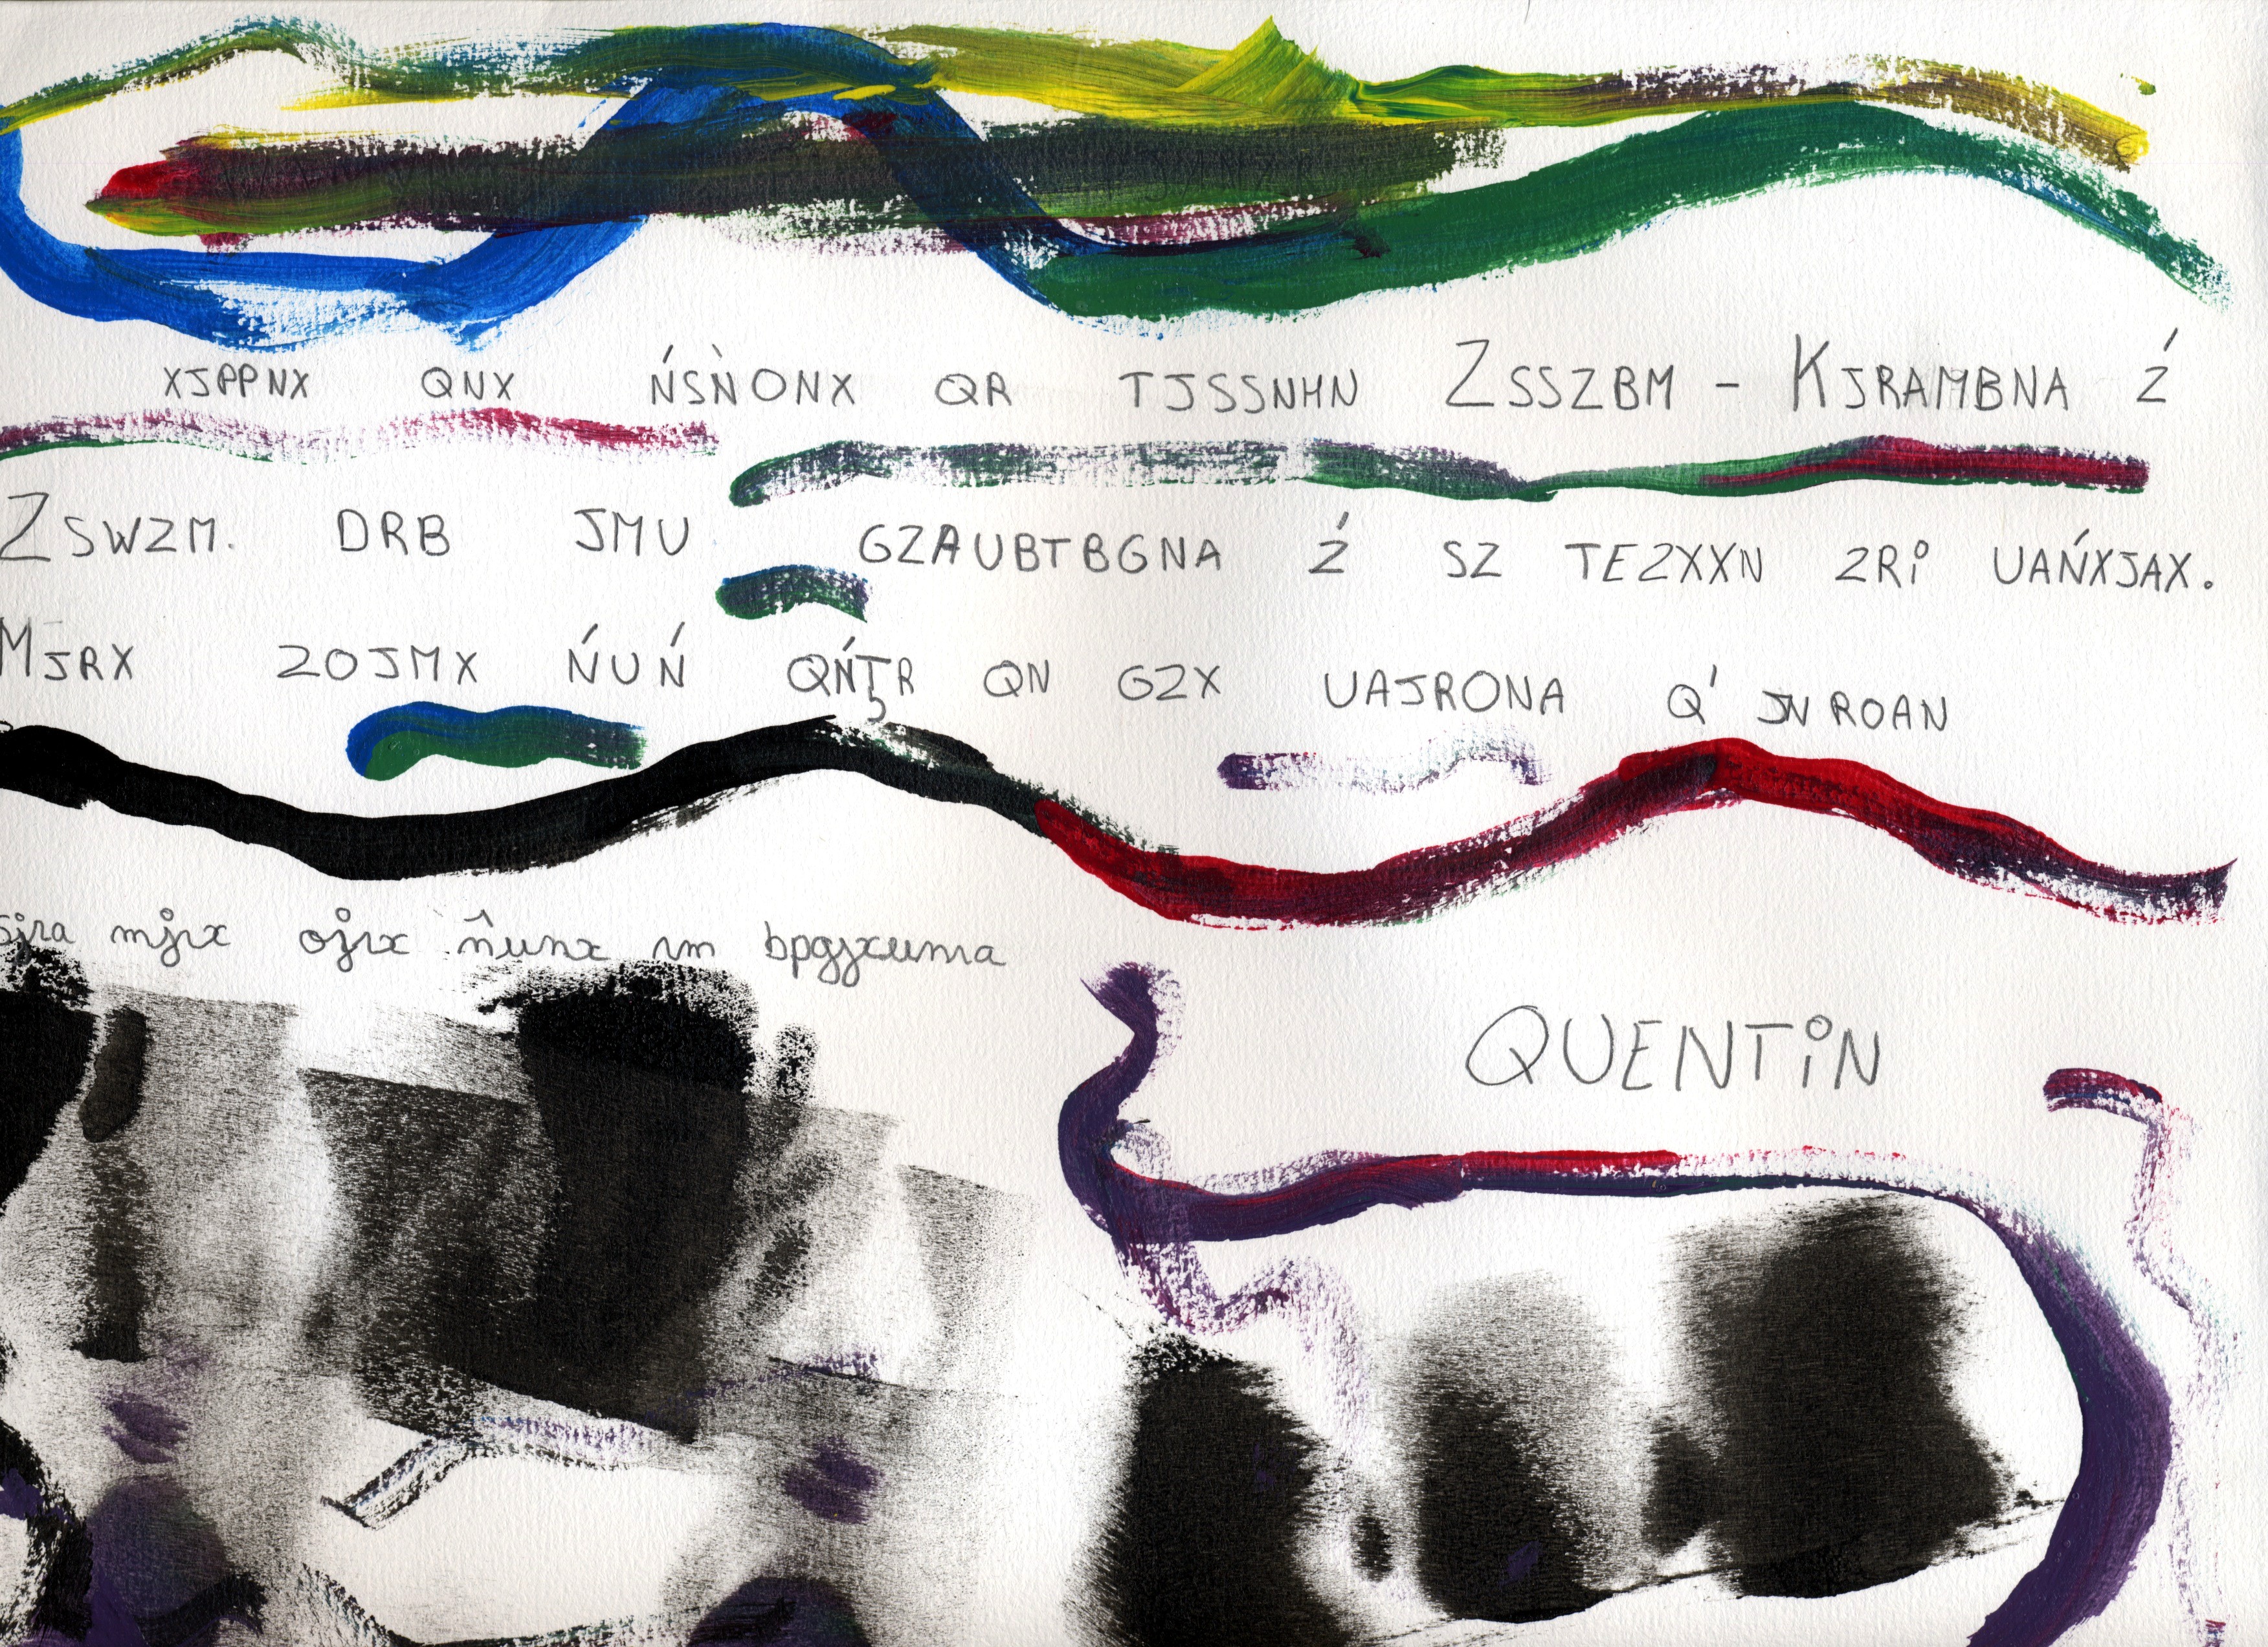 XJPPNX QNX ŃSǸONX QR TJSSNHN ZSSZBM - KJRAMBNA Ź
ZSWZM. DRB JMU GZAUBTBGNA Ź SZ TEZXXN ZRi UAŃXJAX.
MJRX ZOJMX ŃUŃ QŃŢR QN GZX UAJRONA Q' JNROAN
gjra mjrx ojrx n̂unx rm bpgjxunra
QUENTiN